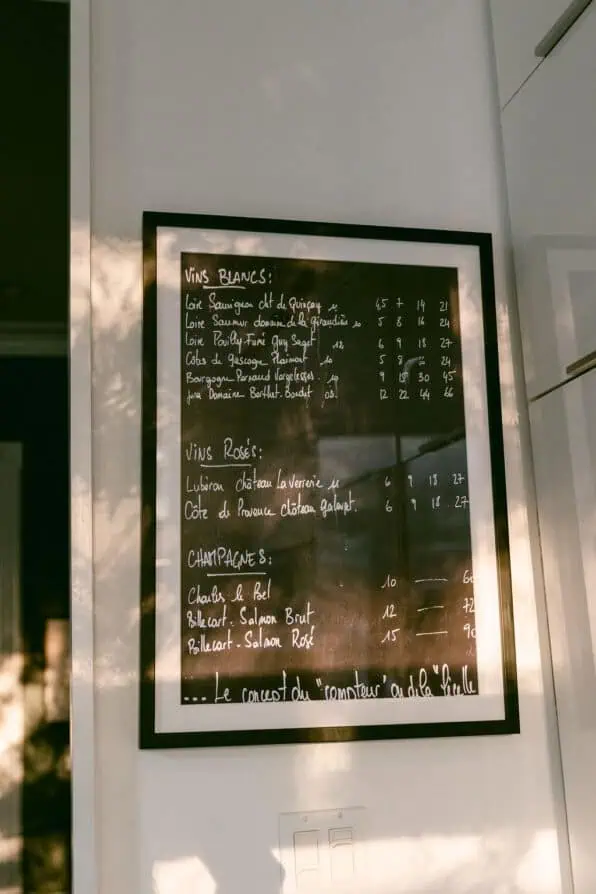 VINS BLANCS:
Loire Sauvignon cht de Quinçay 65 7 14 21
Loire Saumur domaine de la 10 5 8 16 24
Loire Pouilly Fumé Guy Saget 12 6 9 18 27
Côtes de gascogne Plaimont 10 5 8 24
Bourgogne Pernand Vergelesses 9 15 30 45
Jura Domaine Berthet-Bondet 08. 12 22 44 66
VINS ROSÉS:
Lubéron château La Verrerie 11 6 9 18 27
Côte de Provence château galoupet. 6 9 18 27
CHAMPAGNES:
Charles le Bel 10 —
Billecart-Salmon Brut 12 — 72
Billecart-Salmon Rosé 15 — 90
... Le concept du "compteur" ou de la "ficelle